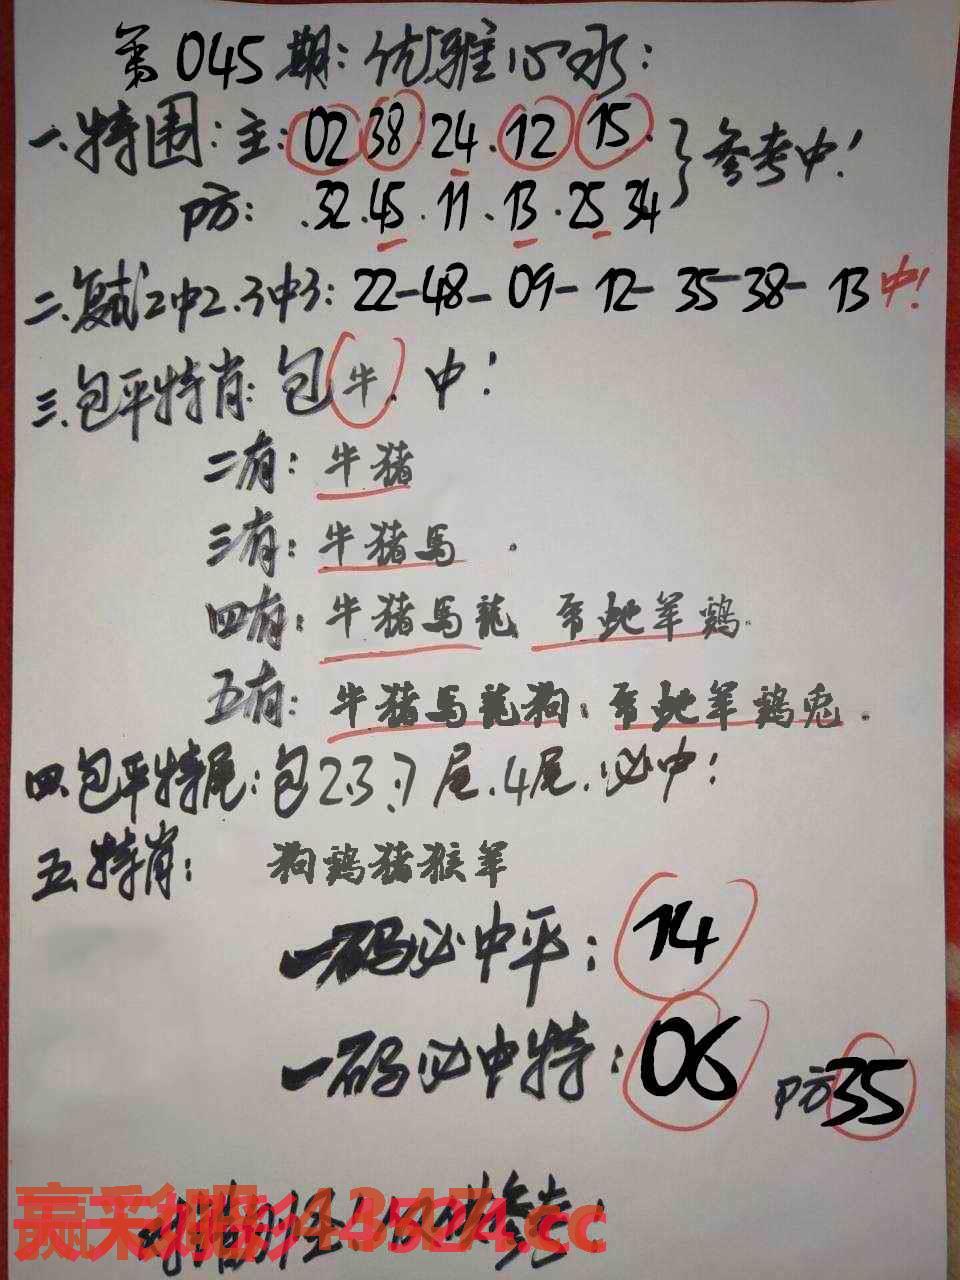 第045期:优雅心水:
一.特围:主:02 38 24.12 15.}参考中!
防:.32.45.11.13.25 34
二.复式2中2.3中3:22-48-09-12-35-38-13中!
三.包平特肖:包牛.中!
二有:牛猪
三有:牛猪馬.
四有:牛猪馬龍 蛇羊鶏.
五有:牛猪馬龍狗. 蛇羊鶏兎.
四.包平特尾:包2.3.7尾.4尾.必中!
五.特肖: 狗鶏猪猴羊
一码必中平:14
一码必中特:06 防35
赢彩吧.cc
参考!